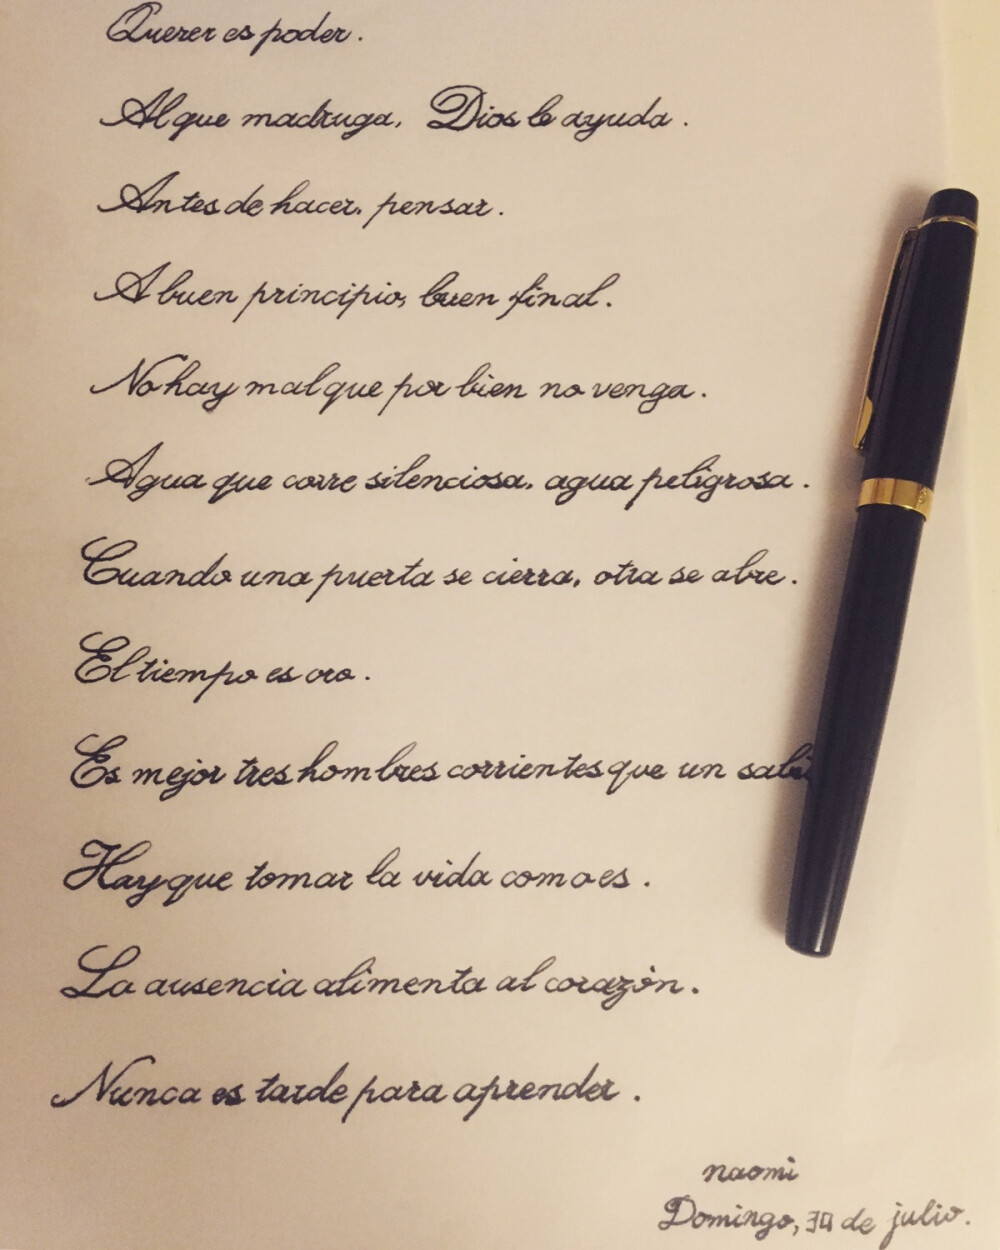 Querer es poder.
Al que madruga, Dios le ayuda.
Antes de hacer, pensar.
A buen principio, buen final.
No hay mal que por bien no venga.
Agua que corre silenciosa, agua peligrosa.
Cuando una puerta se cierra, otra se abre.
El tiempo es oro.
Es mejor tres hombres corrientes que un
Hay que tomar la vida como es.
La ausencia alimenta al corazón.
Nunca es tarde para aprender.
naomi
Domingo, de julio.